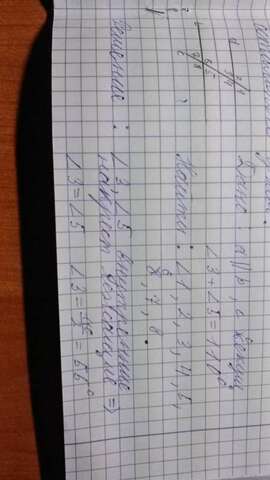 Дано: a∥b, c секущ.
∠3+∠5=110°
Найти: ∠1, 2, 3, 4, 5,
6, 7, 8.
Решение: ∠3, ∠5 внутренние
накрест лежащие =>
∠3=∠5 ∠3= =55°